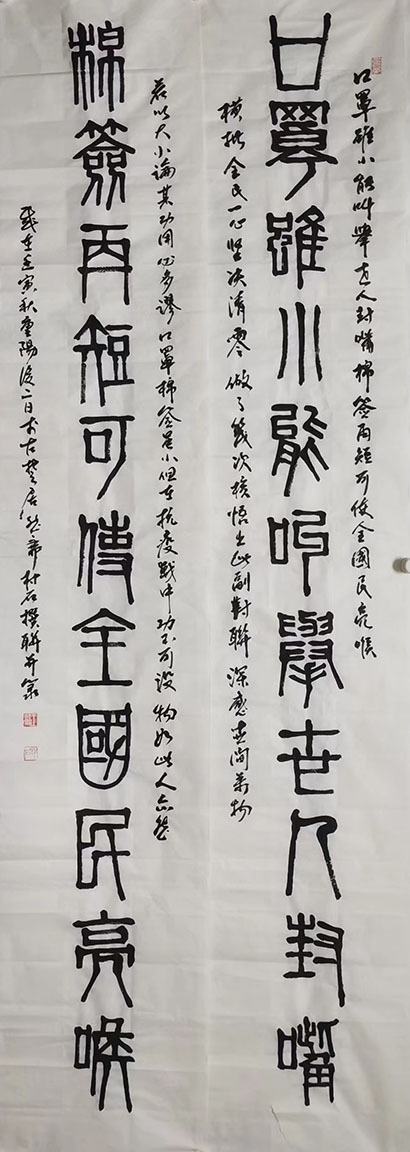 口罩雖小能叫舉世人封嘴棉签再短可使全國民亮喉
口罩雖小能叫舉世人封嘴
横批全民一心坚决清零做了幾次核悟出此副對聯深感世间萬物
若以大小論其功用必多謬口罩棉签虽小但在抗疫戰中功不可没物如此人亦然
棉簽再短可使全國民亮喉
歲在壬寅秋重陽後二日於古楚居然齋村石撰聯并篆